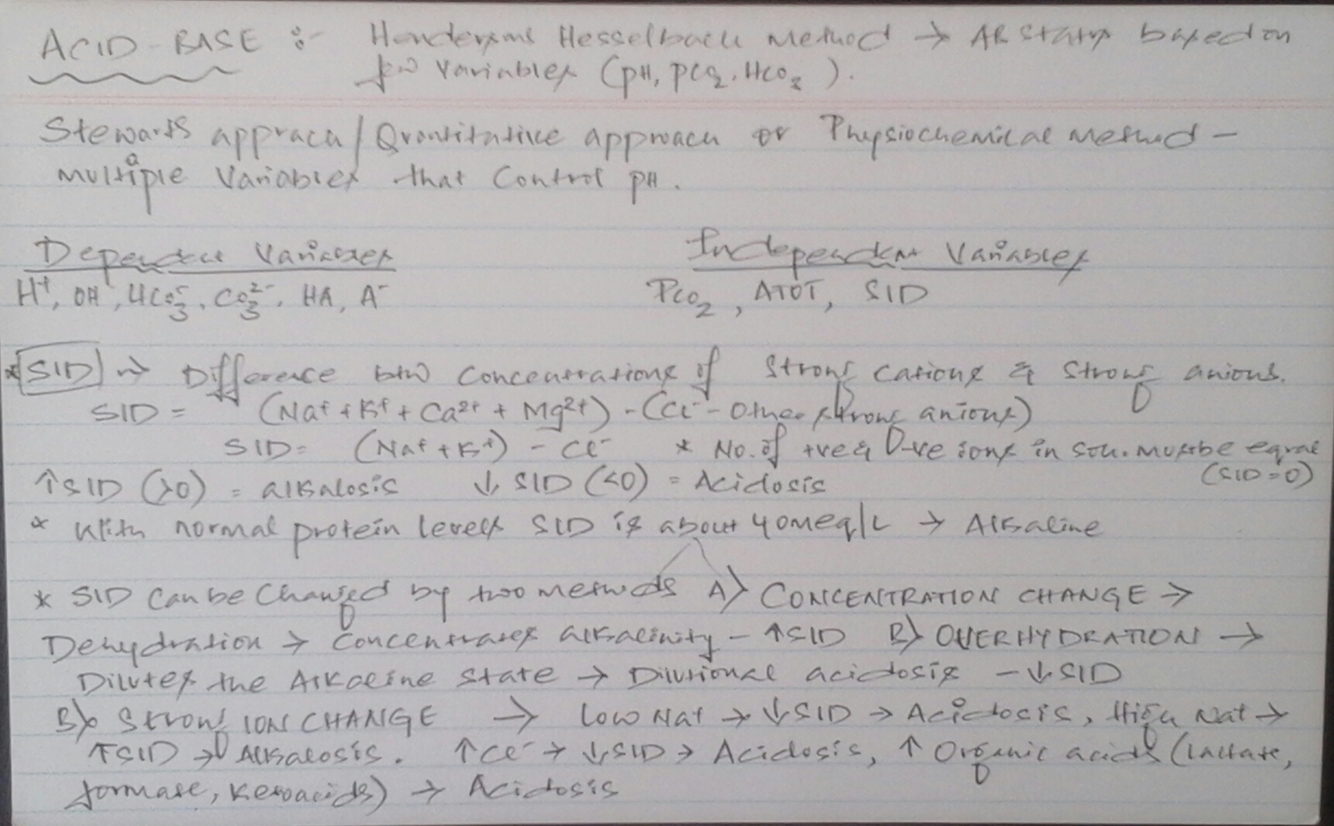 ACID-BASE :- Hendersons Hesselbach Method → AB Status based on
few variables (pH, pCO2, HCO3).
Stewarts apprach/Quantitative approach or Physiochemical Method -
multiple variables that control pH.
Dependent Variables Independent Variables
H+, OH-, HCO3-, CO3 2-, HA, A- PCO2, ATOT, SID
* SID → Difference btw concentrations of strong cations & strong anions.
SID = (Na+ + K+ + Ca2+ + Mg2+) - (Cl- - Other strong anions)
SID = (Na+ + K+) - Cl- * No. of +ve & -ve ions in soln. must be equal
↑SID (>0) = alkalosis ↓ SID (<0) = Acidosis (SID=0)
* With normal protein levels SID is about 40meq/L → Alkaline
* SID can be changed by two methods A) CONCENTRATION CHANGE →
Dehydration → Concentrates alkalinity - ↑SID B) OVERHYDRATION →
Dilutes the Alkaline state → Dilutional acidosis - ↓SID
B) STRONG ION CHANGE → Low Na+ → ↓SID → Acidosis, High Na+ →
↑SID → Alkalosis. ↑Cl- → ↓SID → Acidosis, ↑ Organic acids (lactate,
formate, ketoacids) → Acidosis